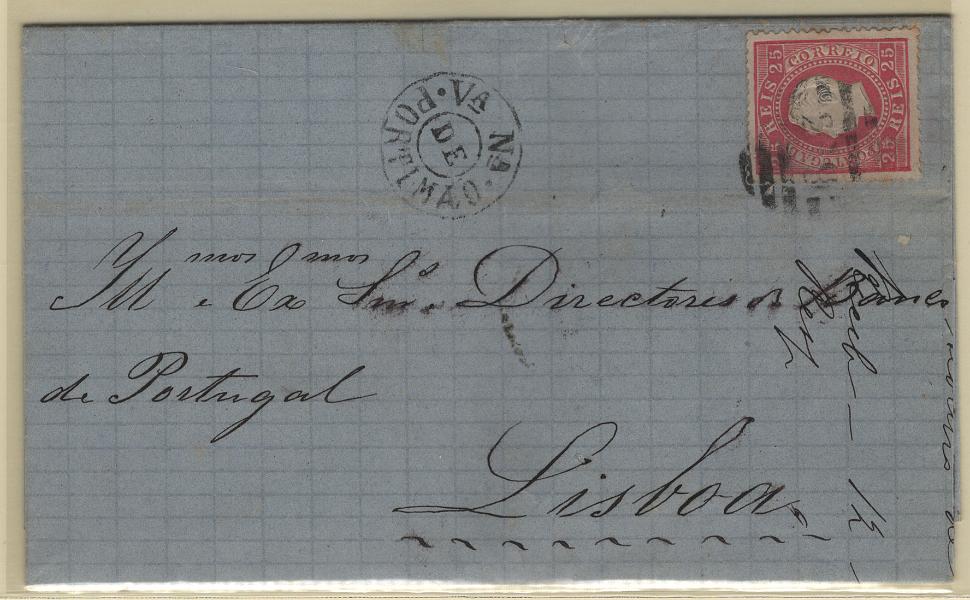 CORREIO
25 REIS
REIS 25
25
25
PORTUGAL
VA. NA DE PORTIMÃO.
Ill^mos e Ex^mos Snr^s. Directores do Banco
de Portugal
Lisboa